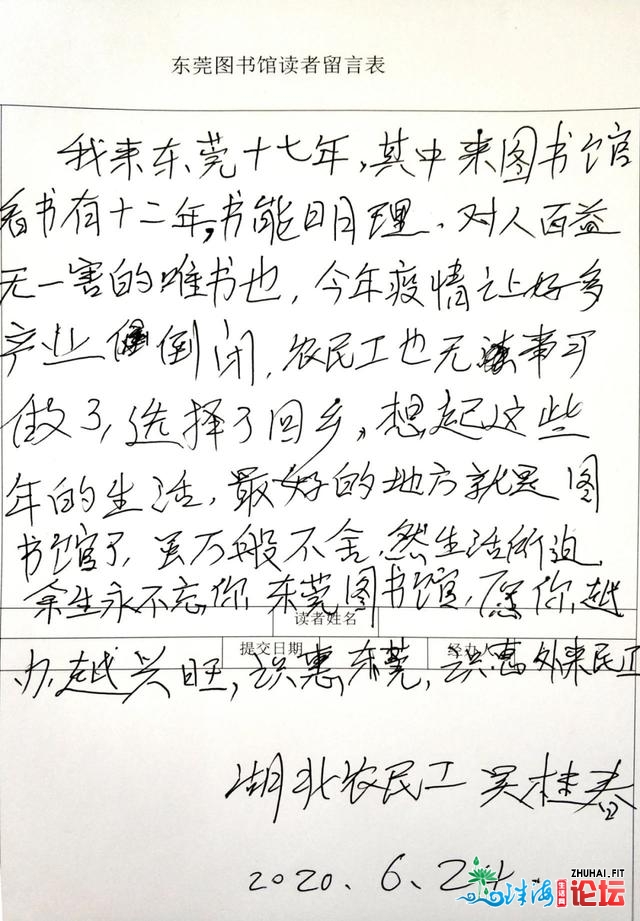 东莞图书馆读者留言表
我来东莞十七年,其中来图书馆
看书有十二年,书能明理、对人百益
无一害的唯书也,今年疫情让好多
产业倒闭,农民工也无事可
做了,选择了回乡,想起这些
年的生活,最好的地方就是图
书馆了,虽万般不舍,然生活所迫,
余生永不忘你,东莞图书馆,愿你越
读者姓名
提交日期
经办人
办越兴旺,识惠东莞,识惠外来民工
湖北农民工 吴桂春
2020.6.24.
ZHUHAI.FIT
珠海
生活网
论坛